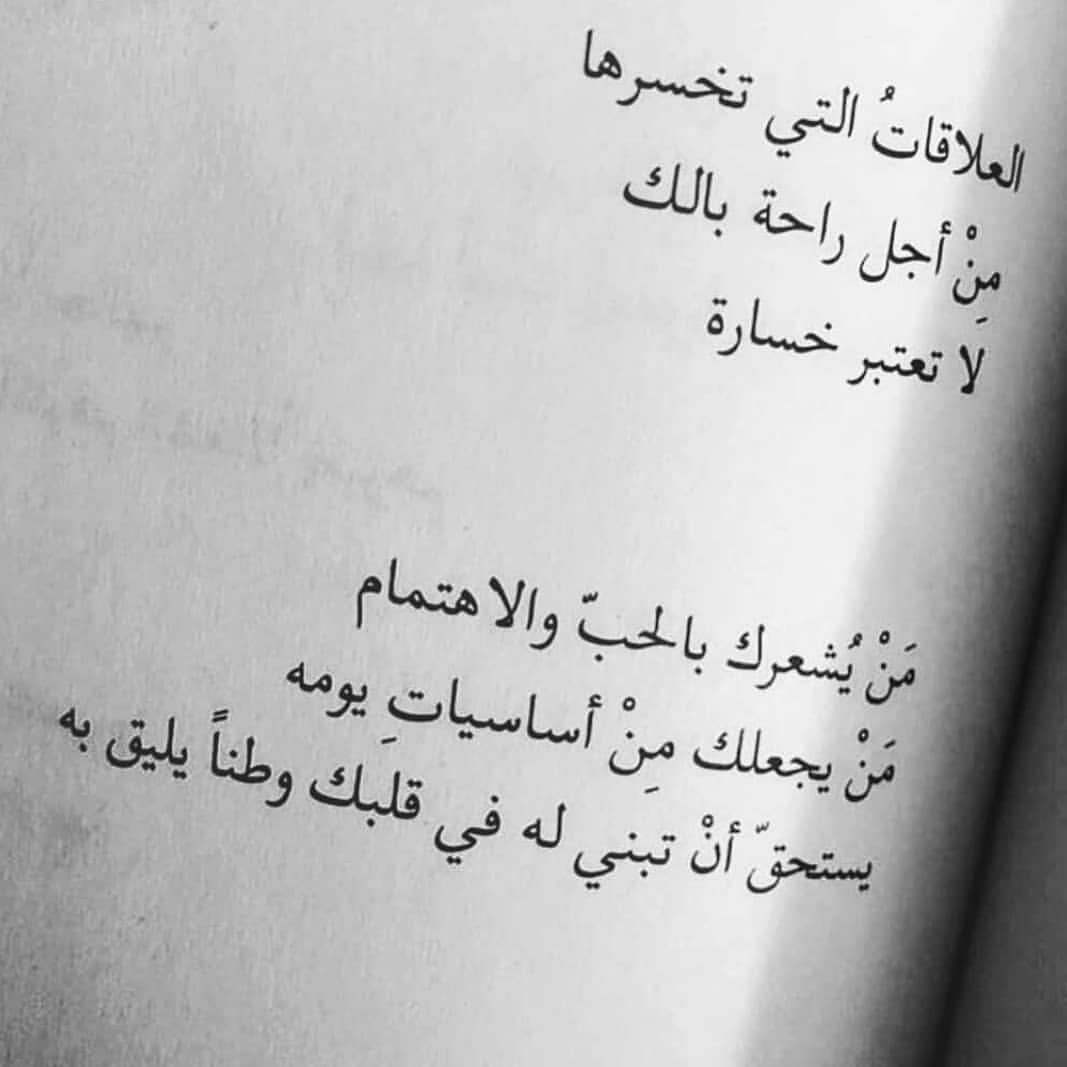 العلاقاتُ التي تخسرها
مِنْ أجل راحة بالك
لا تعتبر خسارة
مَنْ يُشعرك بالحبّ والاهتمام
مَنْ يجعلك مِنْ أساسياتِ يومه
يستحقّ أنْ تبني له في قلبك وطناً يليق به